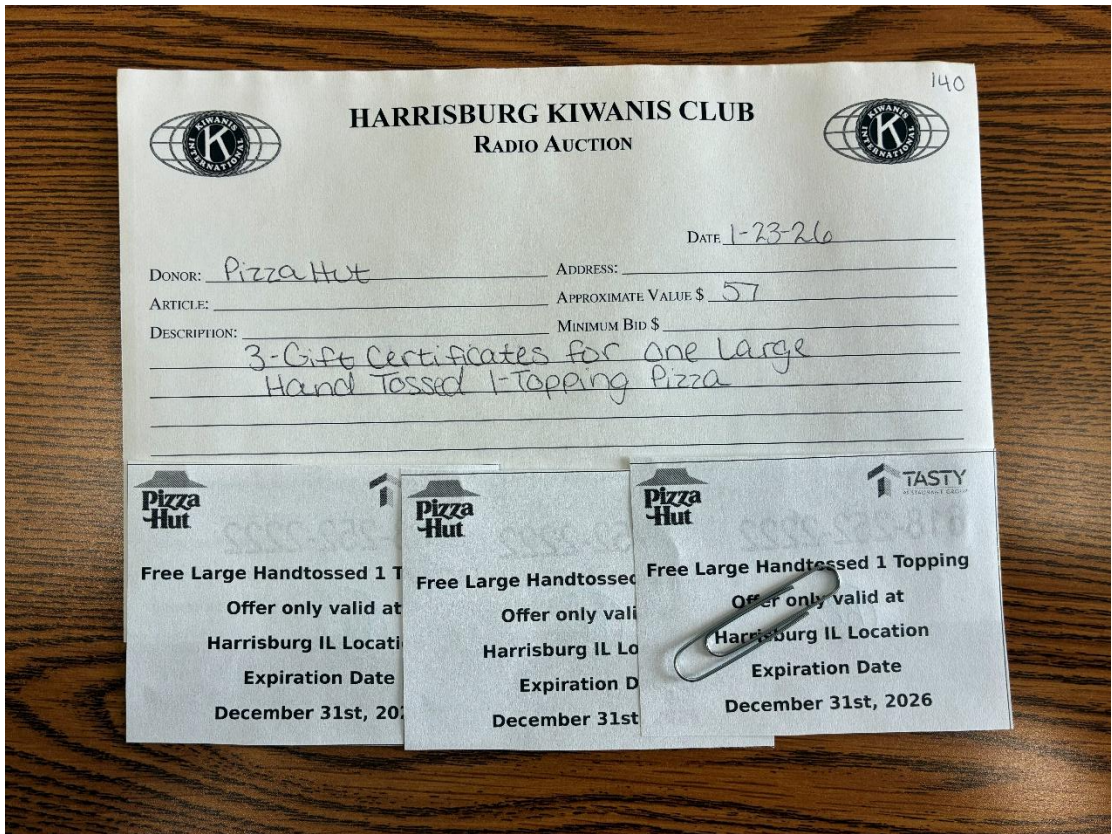 140
KIWANIS INTERNATIONAL K
HARRISBURG KIWANIS CLUB
RADIO AUCTION
KIWANIS INTERNATIONAL K
DATE 1-23-26
DONOR: Pizza Hut
ADDRESS:
ARTICLE:
APPROXIMATE VALUE $ 57
DESCRIPTION:
MINIMUM BID $
3-Gift Certificates for one Large
Hand Tossed 1-Topping Pizza
Pizza
Hut
Free Large Handtossed 1 T
Offer only valid at
Harrisburg IL Locati
Expiration Date
December 31st, 202
Pizza
Hut
Free Large Handtossed
Offer only vali
Harrisburg IL Lo
Expiration D
December 31st
Pizza
Hut
TASTY
RESTAURANT GROUP
618-252-2222
Free Large Handtossed 1 Topping
Offer only valid at
Harrisburg IL Location
Expiration Date
December 31st, 2026